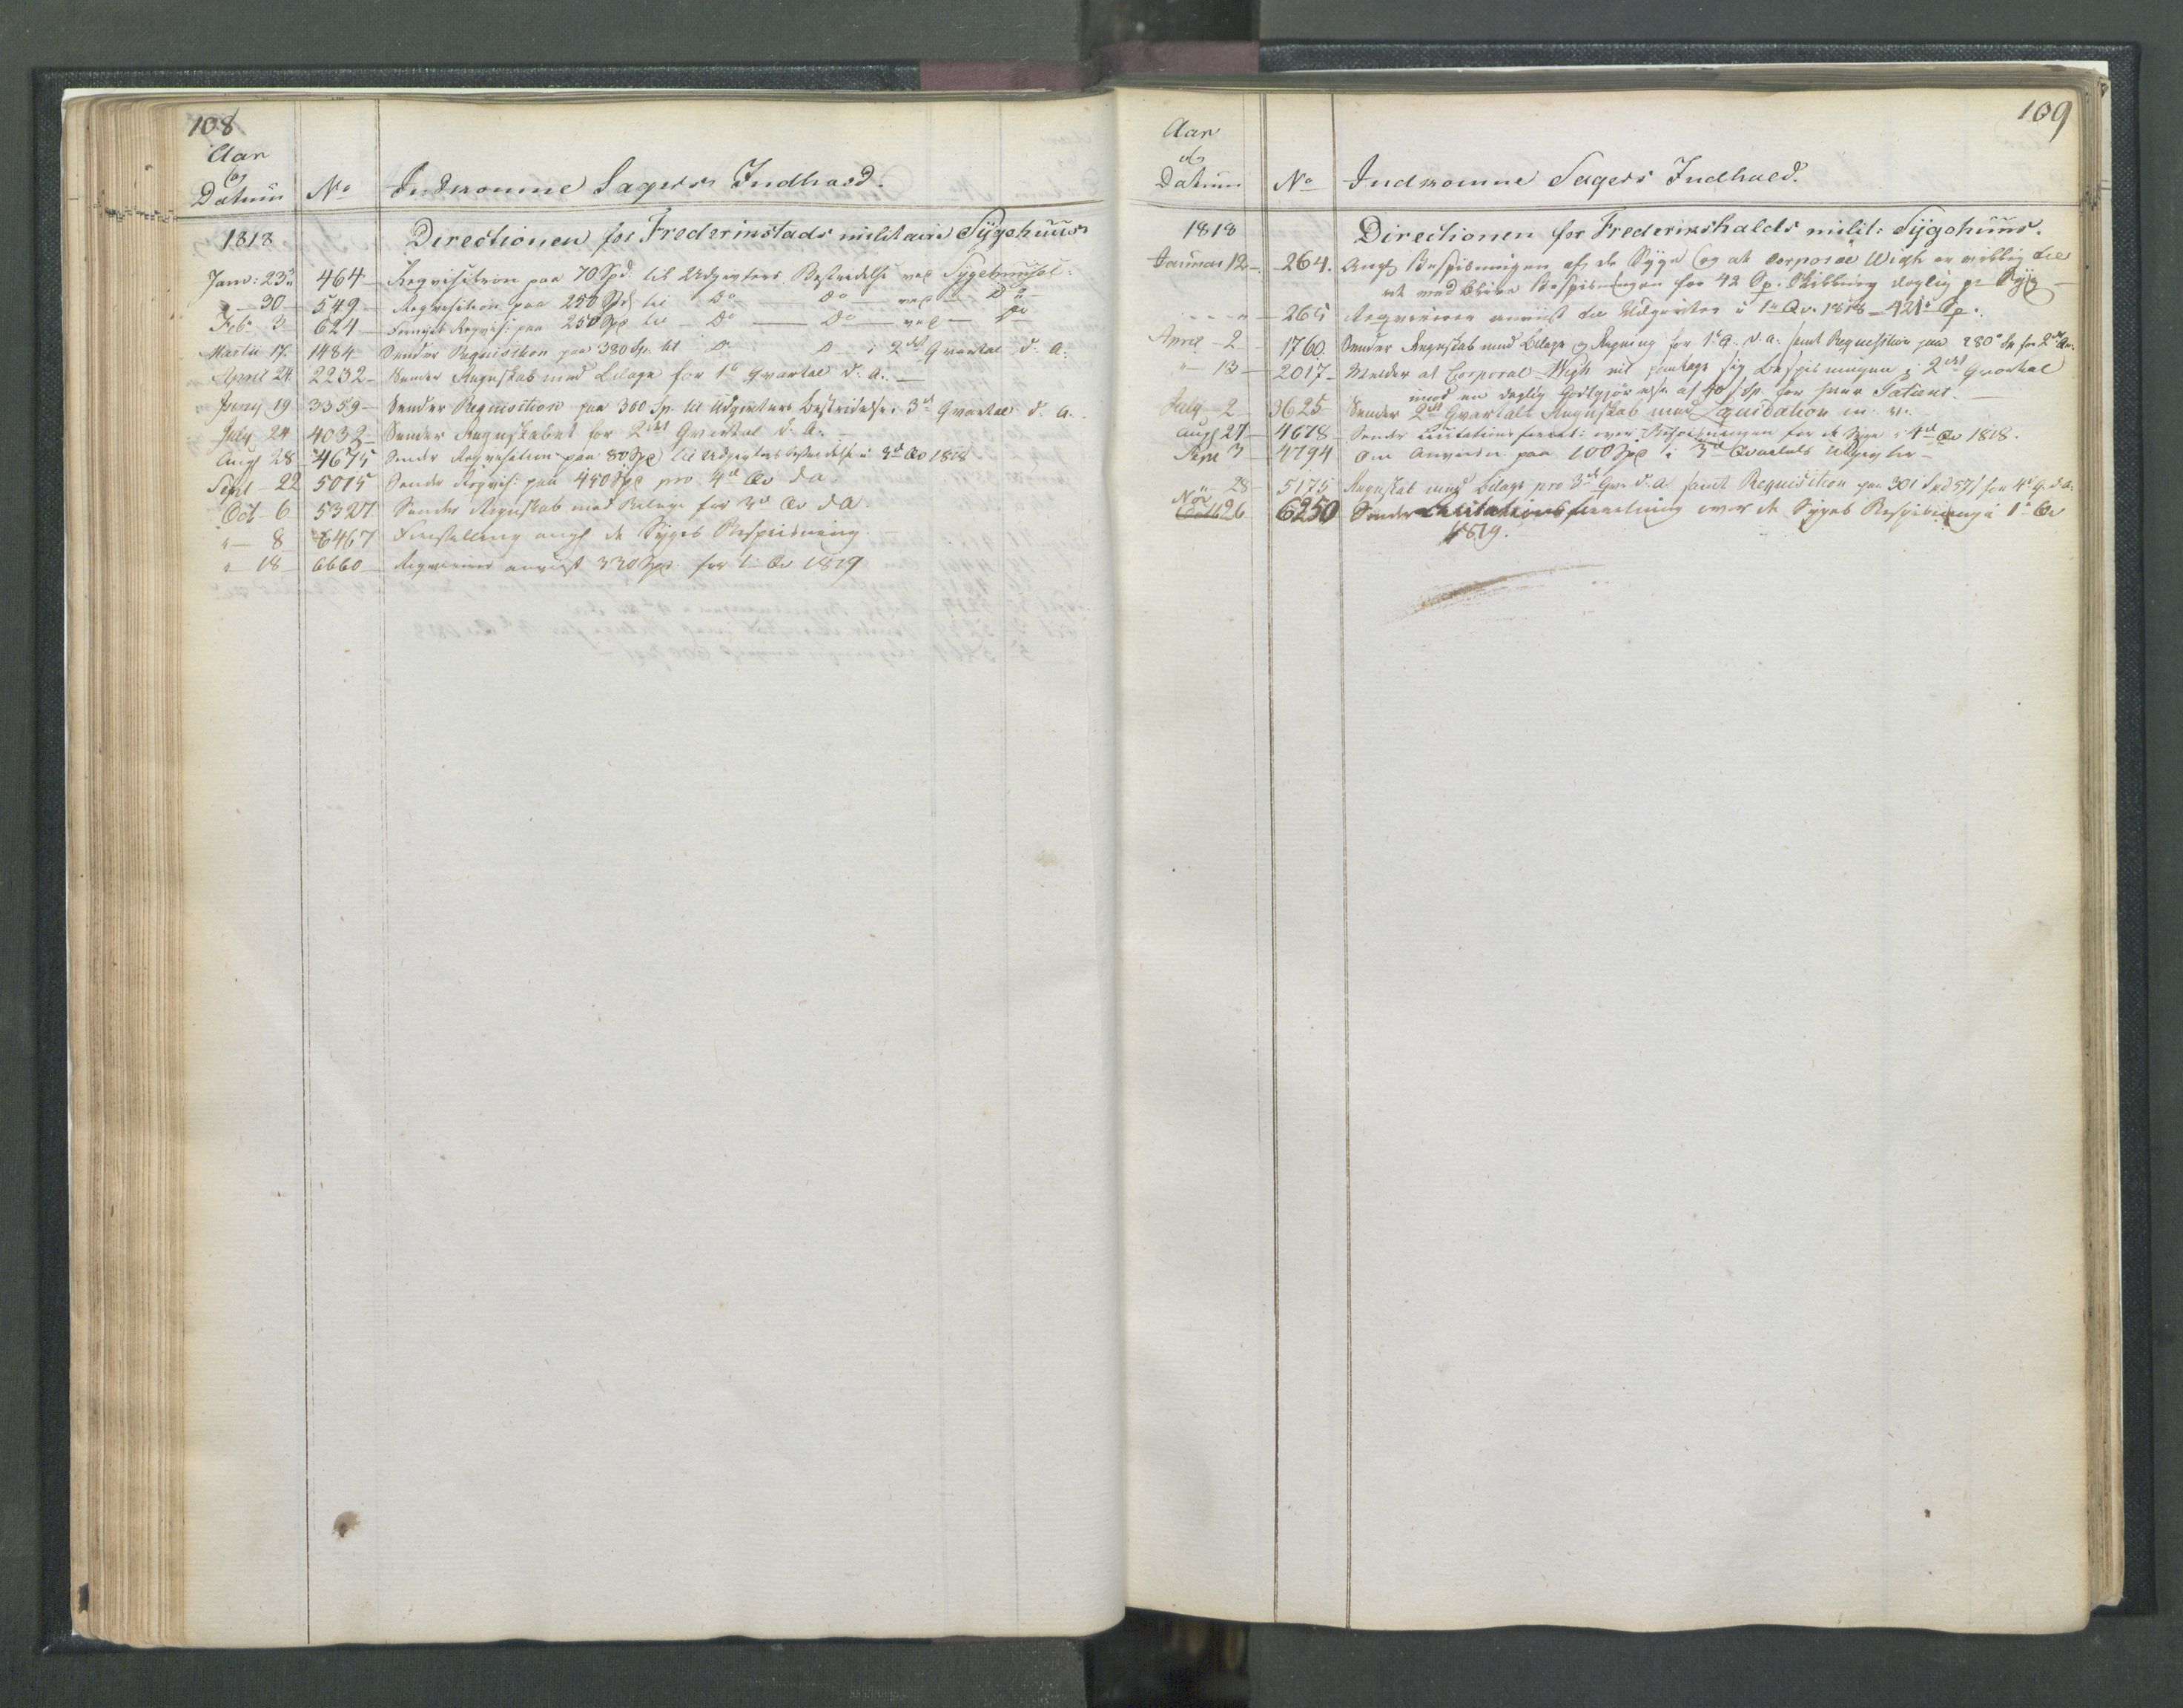 108
Aar
og
Datum No Indkomne Sagers Indhold.
1818 Directionen for Frederikstads militaire Sygehuus
Janv: 23de 464 Reqvisition paa 70 Spd. til Udgivters Bestridelse ved Sygehuuset
" 30 549 Reqvisition paa 250 Spd til Do Do ved Do
Feb. 3 624 Reqvis: paa 250 Spd til Do Do ved Do
Martii 17. 1484 Sender Requisition paa 380 Sp. til Do Do i 2det Qvartal d. A.
April 24 2232 Sender Regnskab med Bilage for 1te Qvartal d. A.
Juny 19 3359 Sender Requisition paa 360 Sp. til Udgivters Bestridelse i 3die Qvartal d. A.
July 24 4032 Sender Regnskabet for 2det Qvartal d. A.
Aug 28 4675 Sender Reqvisition paa 80 Spd til Udgivters Bestridelse i 3die Qv 1818
Sept 22 5015 Sender Reqvis: paa 450 Spd pro 4de Qv d A.
Oct 6 5327 Sender Regnskab med Bilage for 3die Qv d A.
" 8 6467 Forestilling angl de Syges Bespiisning.
" 18 6660 Reqvirerer anviist 330 Spd for 1te Qv 1819
109
Aar
og
Datum No Indkomne Sagers Indhold.
1818 Directionen for Frederikshalds milit: Sygehuus.
Januar 12 264. Angl Bespisningen af de Syge og at Corporal Wigh er villig til
at vedblive Bespisningen for 42 Sp. Skilling daglig pr Syg
" 265 Reqvirerer anviist til Udgivter i 1te Qv. 1818 421 Sp.
April 2 1760. Sender Regnskab med Bilage og Regning for 1te Q. d. a. samt Requisition paa 280 Sp for 2det Qv.
" 13 2017 Melder at Corporal Wigh vil paatage sig Bespisningen i 2det Qvartal
imod en daglig Godtgjørelse af 40 s. Sp. for hver Patient.
July 2 3625 Sender 2det Qvartals Regnskab med Liquidation m. v.
Aug 27 4678 Sender Licitationsforret: over Bespisningen for de Syge i 4de Qv 1818.
Sept 3 4794 Om Anvisn paa 100 Spd i 3die Qvartals Udgivter
" 28 5175 Regnskab med Bilage pro 3die Qv. d. A. samt Requisition paa 301 Spd 57 s for 4de Q. d. A.
Nov 26 6250 Sender Licitationsforretning over de Syges Bespisning i 1te Qv
1819.